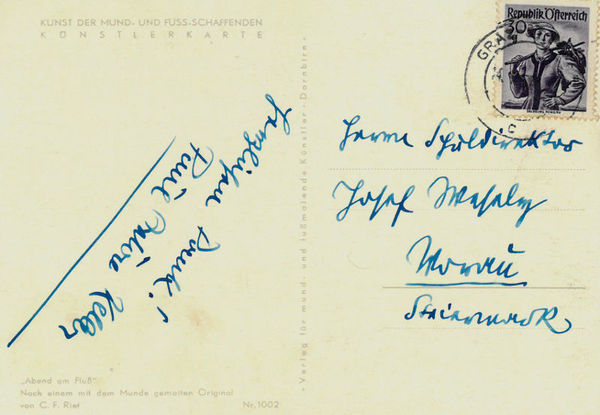 KUNST DER MUND- UND FUSS-SCHAFFENDEN
KÜNSTLERKARTE
Herzlichen Dank!
Keller
„Abend am Fluß“
Nach einem mit dem Munde gemalten Original
von C. F. Rief
Nr. 1002
- Verlag für mund- und fußmalende Künstler - Dornbirn -
Republik Österreich
30
GRAZ
Herrn Schuldirektor
Josef Wesely
Vorau
Steiermark